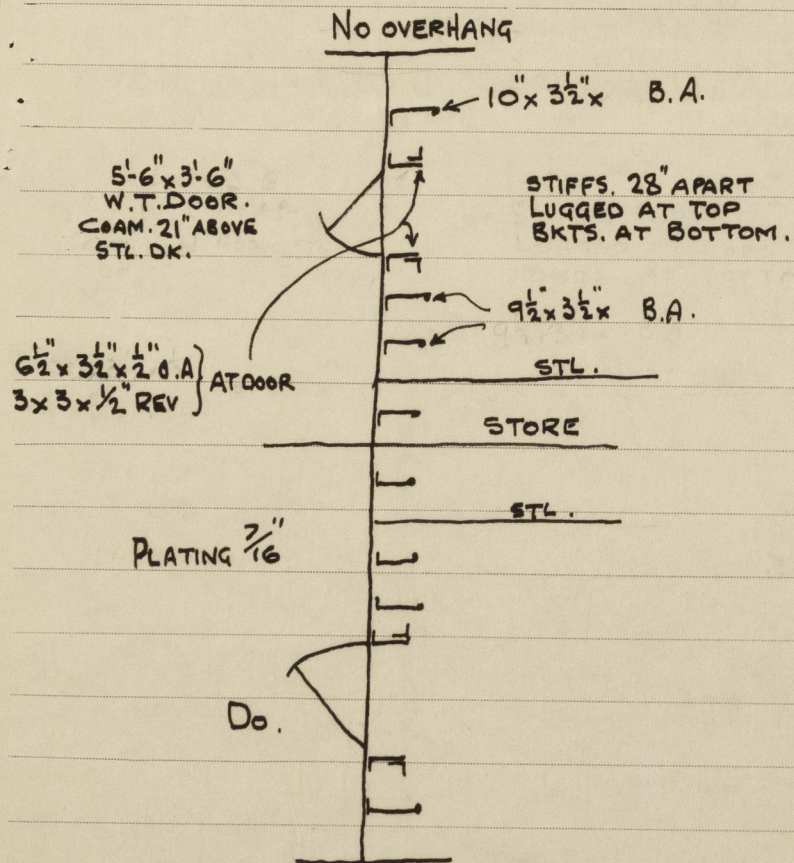 NO OVERHANG
10" x 3½" x B.A.
5'-6" x 3'-6"
W.T. DOOR.
COAM. 21" ABOVE
STL. DK.
STIFFS. 28" APART
LUGGED AT TOP
BKTS. AT BOTTOM.
9½" x 3½" x B.A.
6½" x 3½" x ½" O.A
3 x 3 x ½" REV
AT DOOR
STL.
STORE
STL.
PLATING 7/16"
Do.